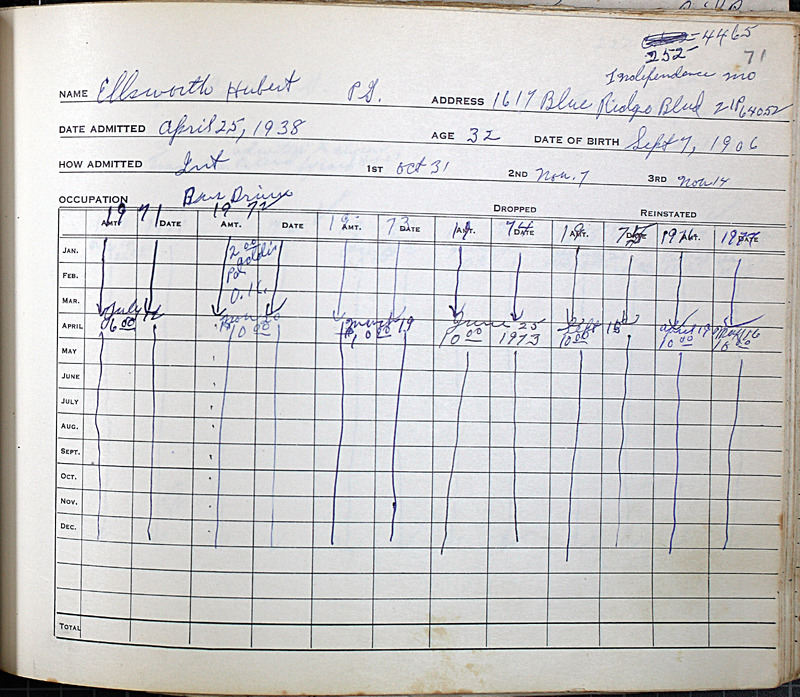 4465
252 71
Independence mo
NAME Ellsworth Hubert P.G. ADDRESS 1617 Blue Ridge Blvd ZIP 64052
DATE ADMITTED April 25, 1938 AGE 32 DATE OF BIRTH Sept 7, 1906
HOW ADMITTED Int 1ST Oct 31 2ND Nov. 7 3RD Nov 14
OCCUPATION DROPPED REINSTATED
19 71 19 72 19 73 19 74 19 75 1976 1977
AMT. DATE AMT. DATE AMT. DATE AMT. DATE AMT. DATE AMT. DATE
JAN. 2 00
FEB. Pd
MAR. O.K.
July 12 March 19 June 25 Sept 15 April 19 May 16
APRIL 6 00 10 00 10 00 10 00 1973 10 00 10 00 10 00
MAY
JUNE
JULY
AUG.
SEPT.
OCT.
NOV.
DEC.
TOTAL